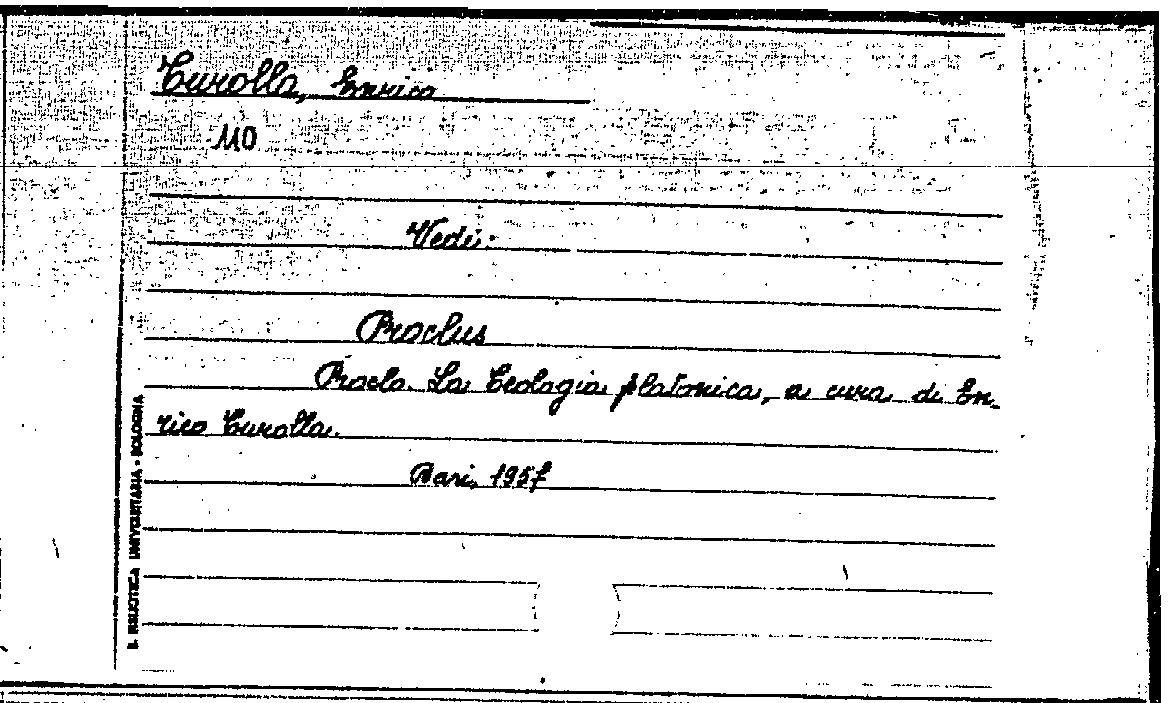 Turolla, Enrico
MO
Vedi:
Proclus
Proclo. La Teologia platonica, a cura di En-
rico Turolla.
Bari, 1957
B. BIBLIOTECA UNIVERSITARIA - BOLOGNA